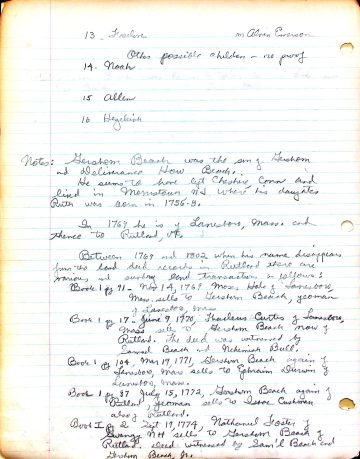 13. m Alvin Emerson
Other possible children - no proof
14. Noah
15 Allen
16 Hezekiah
Notes: Gershom Beach was the son of Gershom
and Deliverance How Beach.
He seems to have left Cheshire, Conn and
lived in Morristown NJ where his daughter
Ruth was born in 1756-8.
In 1769 he is of Lanesboro, Mass. and
thence to Rutland, Vt.
Between 1769 and 1802 when his name disappears
from the land deed records in Rutland there are
various and sundry land transactions as follows:
Book 1 pg 91 - Nov 14, 1769 Moses Hale of Lanesboro,
Mass. sells to Gershom Beach, yeoman
of Lanesboro, Mass
Book 1 pg 17 - June 9, 1770, Curtis of Lanesboro,
Mass sells to Gershom Beach now of
Rutland. The deed was witnessed by
Samuel Beach and Nehemiah Bull.
Book 1 pg 104 Mar 19, 1771, Gershom Beach again of
Lanesboro, Mass sells to Ephraim
of Lanesboro, Mass.
Book 1 pg 37 July 15, 1772, Gershom Beach again of
Rutland, yeoman sells to Isaac Cushman
also of Rutland.
Book 1 pg 2 Sept 19, 1774, Nathaniel Foster of
Swanzey NH sells to Gershom Beach of
Rutland. Deed witnessed by Sam'l Beach and
Gershom Beach, Jr.